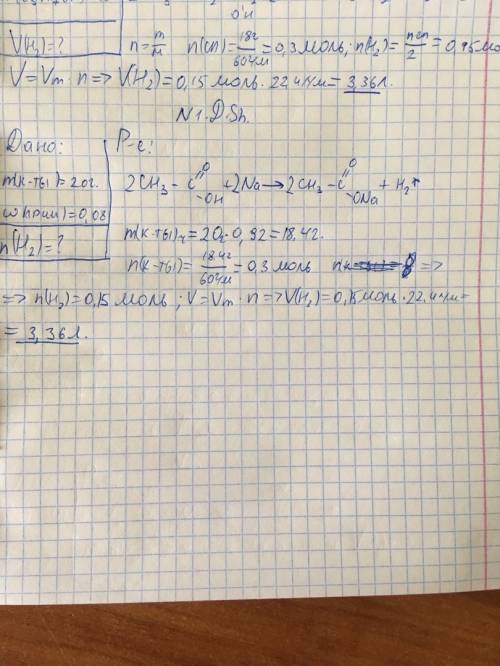 O'H
V(H₂)=? n=m/M n(сп)=18г/60г/м=0,3моль; n(H₂)=nсп/2=0,15мо
V=Vm·n=>V(H₂)=0,15моль·22,4л/м=3,36л.
N1.D.Sh.
Дано: Р-е:
m(к-ты)=20г. 2CH₃-C=O-OH+2Na→2CH₃-C=O-ONa+H₂↑
w(прим)=0,08 m(к-ты)ч=20г·0,92=18,4г.
n(H₂)=? n(к-ты)=18,4г/60г/м=0,3моль =>
=>n(H₂)=0,15моль; V=Vm·n=>V(H₂)=0,15моль·22,4л/м=
=3,36л.